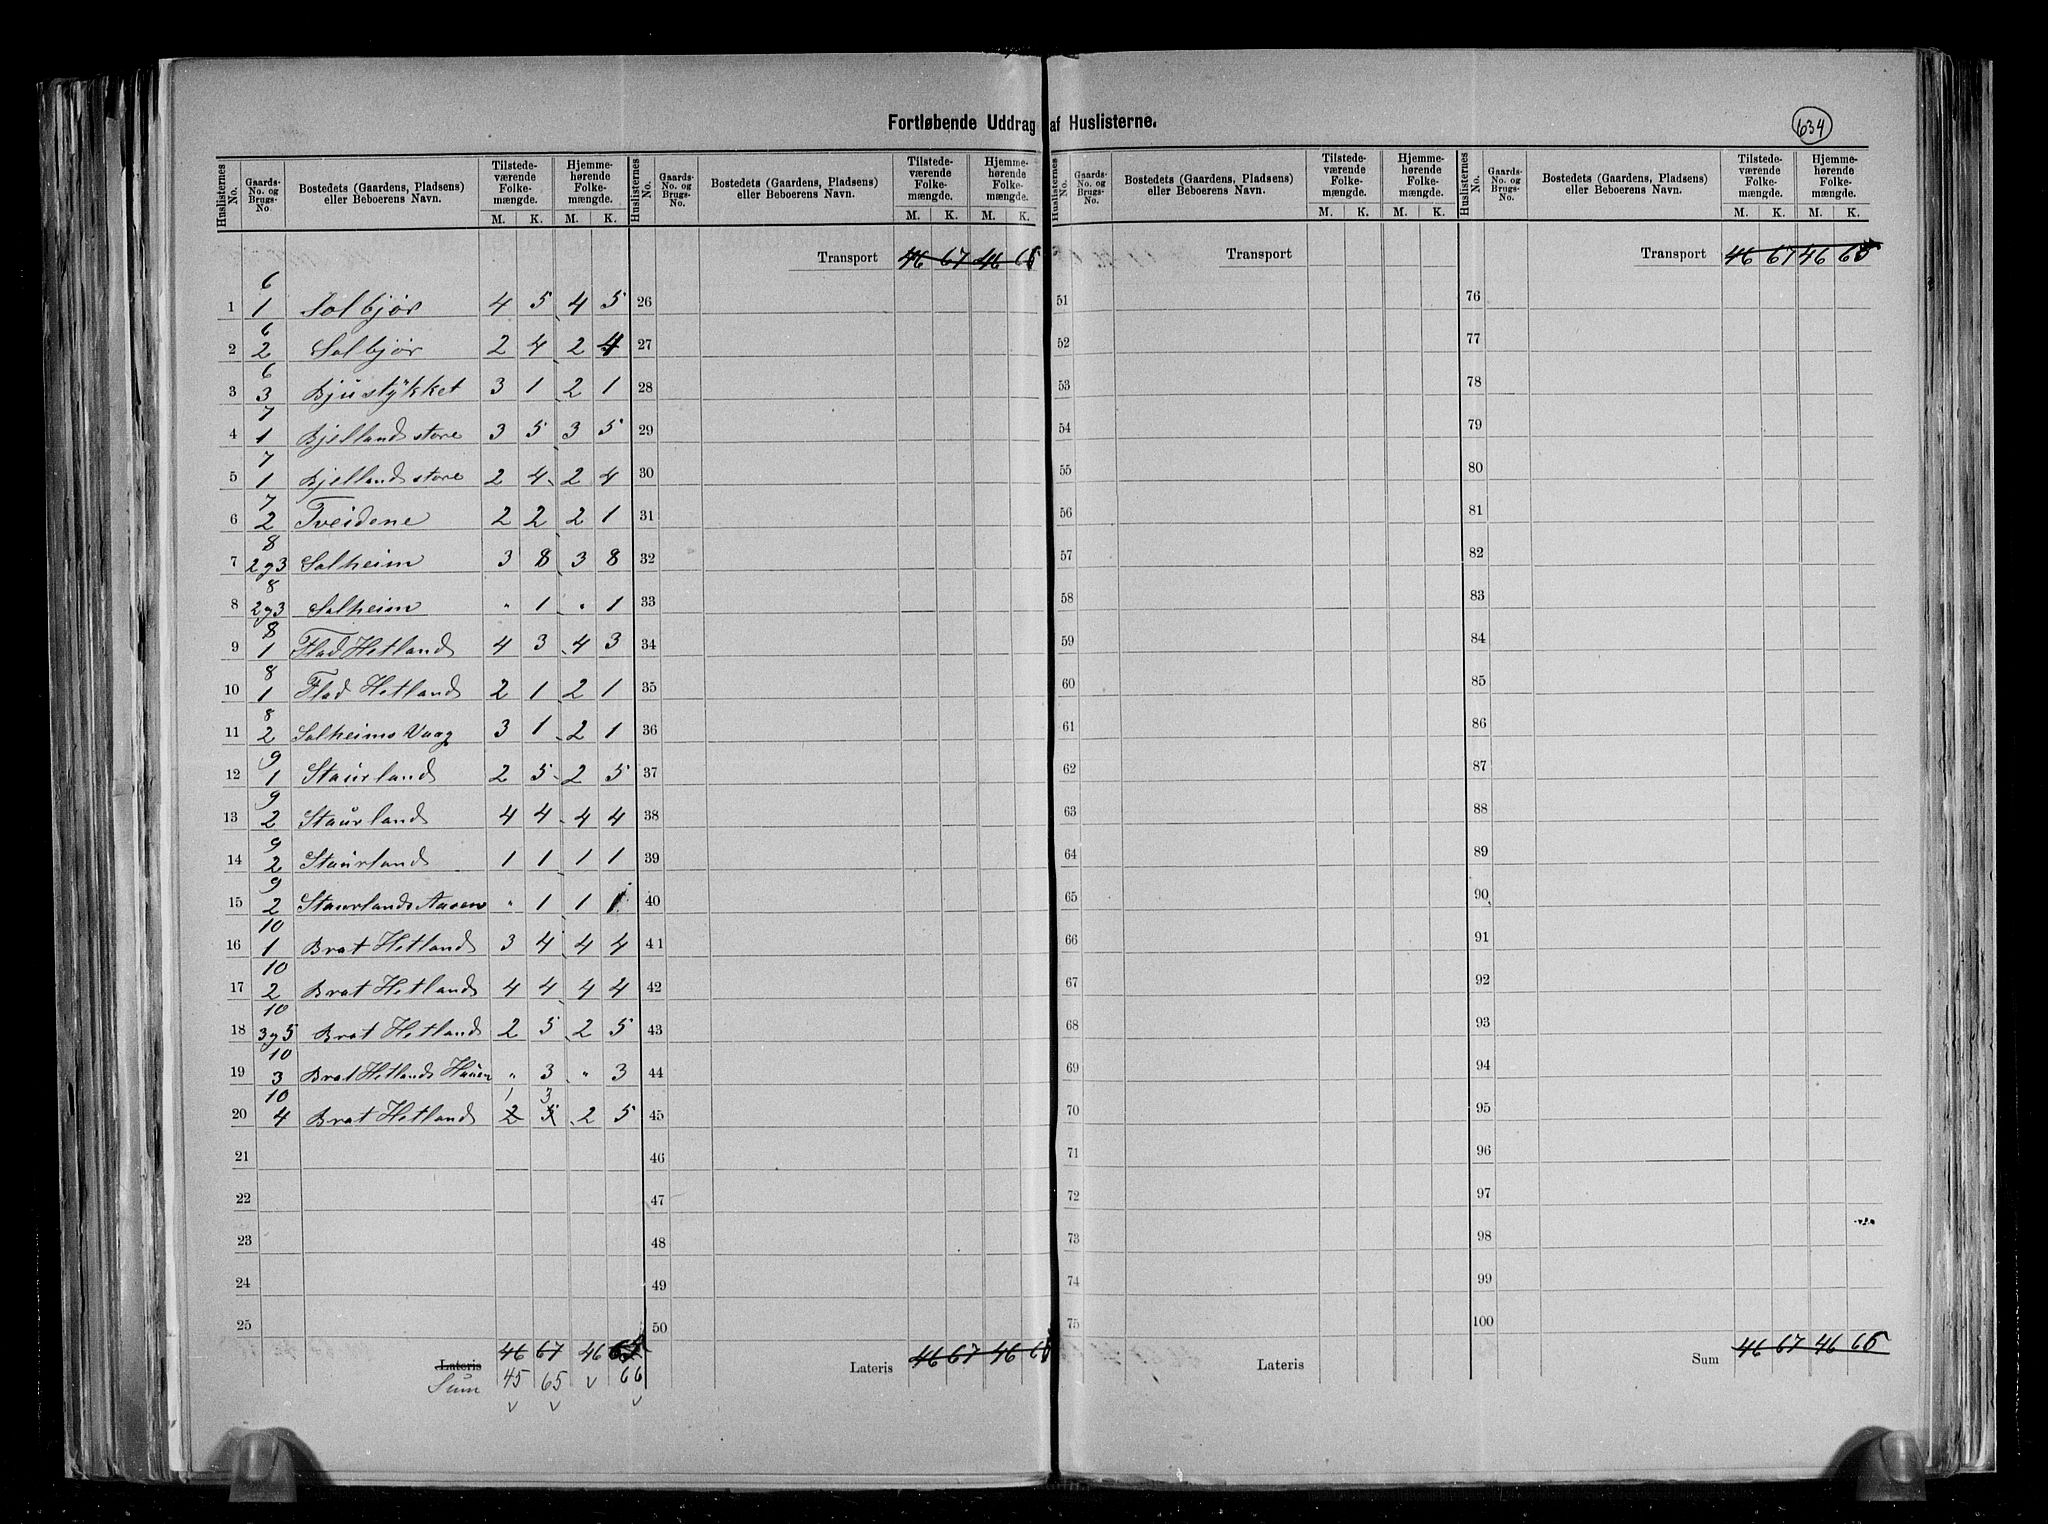 Fortløbende Uddrag af Huslisterne.
634
Huslisternes No. | Gaards-No. og Brugs-No. | Bostedets (Gaardens, Pladsens) eller Beboerens Navn. | Tilstedeværende Folkemængde. M. K. | Hjemmehørende Folkemængde. M. K.
Transport 46 67 46 66
Transport
Transport 46 67 46 65
1 | 6 1 | Solbjør | 4 5 4 5
2 | 6 2 | Solbjør | 2 4 2 4
3 | 6 3 | Bjustykket | 3 1 2 1
4 | 7 1 | Bjelland store | 3 5 3 5
5 | 7 1 | Bjelland store | 2 4 2 4
6 | 7 2 | Tveidene | 2 2 2 1
7 | 8 2 og 3 | Solheim | 3 8 3 8
8 | 8 2 og 3 | Solheim | " 1 " 1
9 | 8 1 | Flad Hetland | 4 3 4 3
10 | 8 1 | Flad Hetland | 2 1 2 1
11 | 8 2 | Solheims Vaag | 3 1 2 1
12 | 9 1 | Staurland | 2 5 2 5
13 | 9 2 | Staurland | 4 4 4 4
14 | 9 2 | Staurland | 1 1 1 1
15 | 9 2 | Staurlands Aasen | " 1 1 1
16 | 10 1 | Brat Hetland | 3 4 4 4
17 | 10 2 | Brat Hetland | 4 4 4 4
18 | 10 3 og 5 | Brat Hetland | 2 5 2 5
19 | 10 3 | Brat Hetlands Hauen | " 3 " 3
20 | 10 4 | Brat Hetland | 2 5 2 5
1 3
21
22
23
24
25
Lateris 46 67 46
Sum 45 65 v 66
v v v
26
27
28
29
30
31
32
33
34
35
36
37
38
39
40
41
42
43
44
45
46
47
48
49
50
Lateris 46 67 46
51
52
53
54
55
56
57
58
59
60
61
62
63
64
65
66
67
68
69
70
71
72
73
74
75
Lateris
76
77
78
79
80
81
82
83
84
85
86
87
88
89
90
91
92
93
94
95
96
97
98
99
100
Sum 46 67 46 66